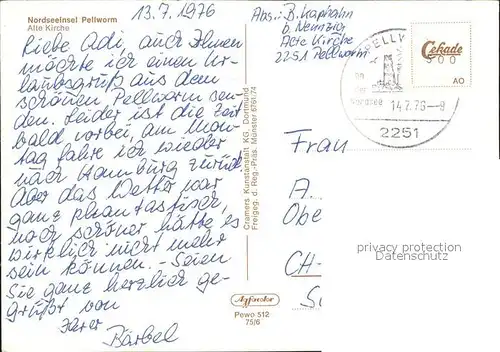 Nordseeinsel Pellworm
Alte Kirche
13.7.1976
Liebe Adi, auch Ihnen
möchte ich einen Ur-
laubsgruß aus dem
schönen Pellworm sen-
den. Leider ist die Zeit
bald vorbei, am Mon-
tag fahre ich wieder
nach Hamburg zurück.
Aber das Wetter war
ganz phantastisch,
noch schöner hätte es
wirklich nicht mehr
sein können. - Seien
Sie ganz herzlich ge-
grüßt von
Ihrer
Bärbel
Cramers Kunstanstalt KG, Dortmund
Freigeg. d. Reg.-Präs. Münster 6761/74
Agfacolor
Pewo 512
75/6
Abs.: B. Kaphahn
b. Nennzig
Alte Kirche
2251 Pellworm
PELLW
an
der
Nordsee
14.7.76-8
2251
Cekade
500
AO
Frau
A
Obe
CH-
privacy protection
Datenschutz